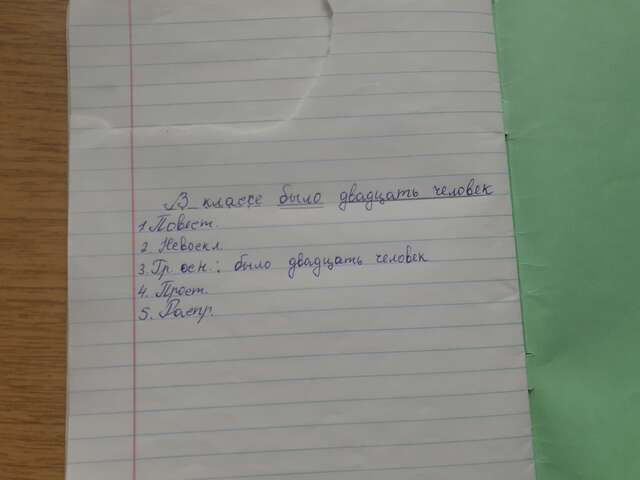 В классе было двадцать человек
1. Повест.
2. Невоскл.
3. Гр. осн.: было двадцать человек
4. Прост.
5. Распр.